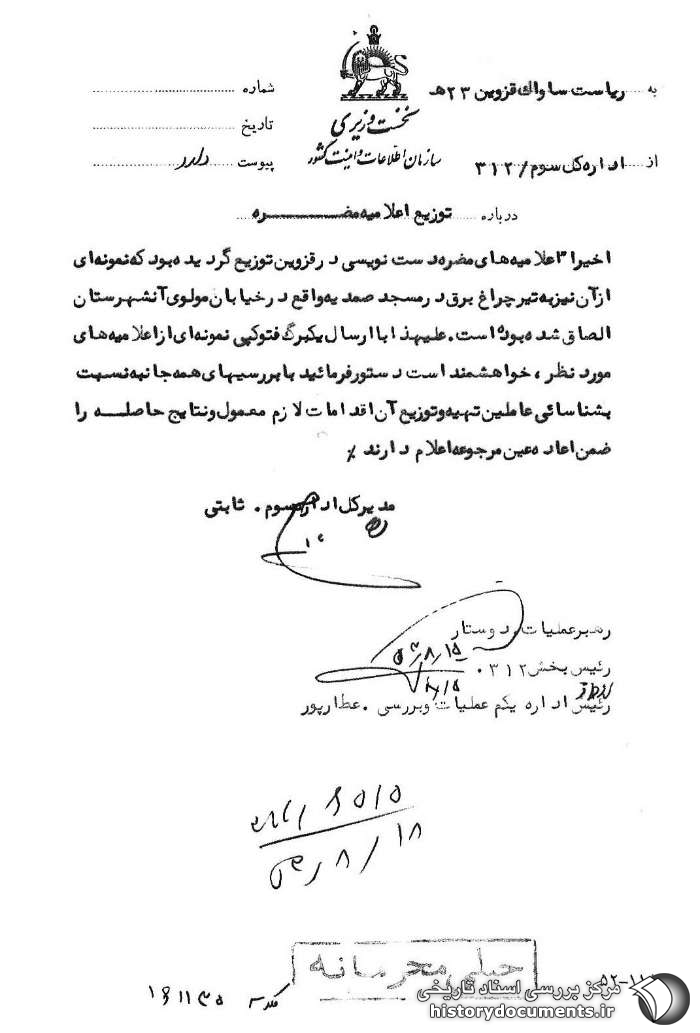 به ریاست ساواک قزوین ۲۳ هـ
شماره
نخست وزیری
تاریخ
سازمان اطلاعات و امنیت کشور
از اداره کل سوم / ۳۱۲
پیوست دارد
درباره توزیع اعلامیه مضره
اخیراً اعلامیه‌های مضره دست نویسی در قزوین توزیع گردیده بود که نمونه‌ای
از آن نیز به تیر چراغ برق در مسجد صمدیه واقع در خیابان مولوی آنشهرستان
الصاق شده بوده است. علیهذا با ارسال یکبرگ فتوکپی نمونه‌ای از اعلامیه‌های
مورد نظر، خواهشمند است دستور فرمائید با بررسیهای همه جانبه نسبت
بشناسائی عاملین تهیه و توزیع آن اقدامات لازم معمول و نتایج حاصله را
ضمن اعاده عین مرجوعه اعلام دارند ٪
مدیر کل اداره سوم. ثابتی
رهبر عملیات. دوستار
۵۳/۸/۱۵
رئیس بخش ۳۱۲.
رئیس اداره یکم عملیات و بررسی. عطارپور
۵۳/۸/۱۸
خیلی محرمانه
مرکز بررسی اسناد تاریخی
historydocuments.ir